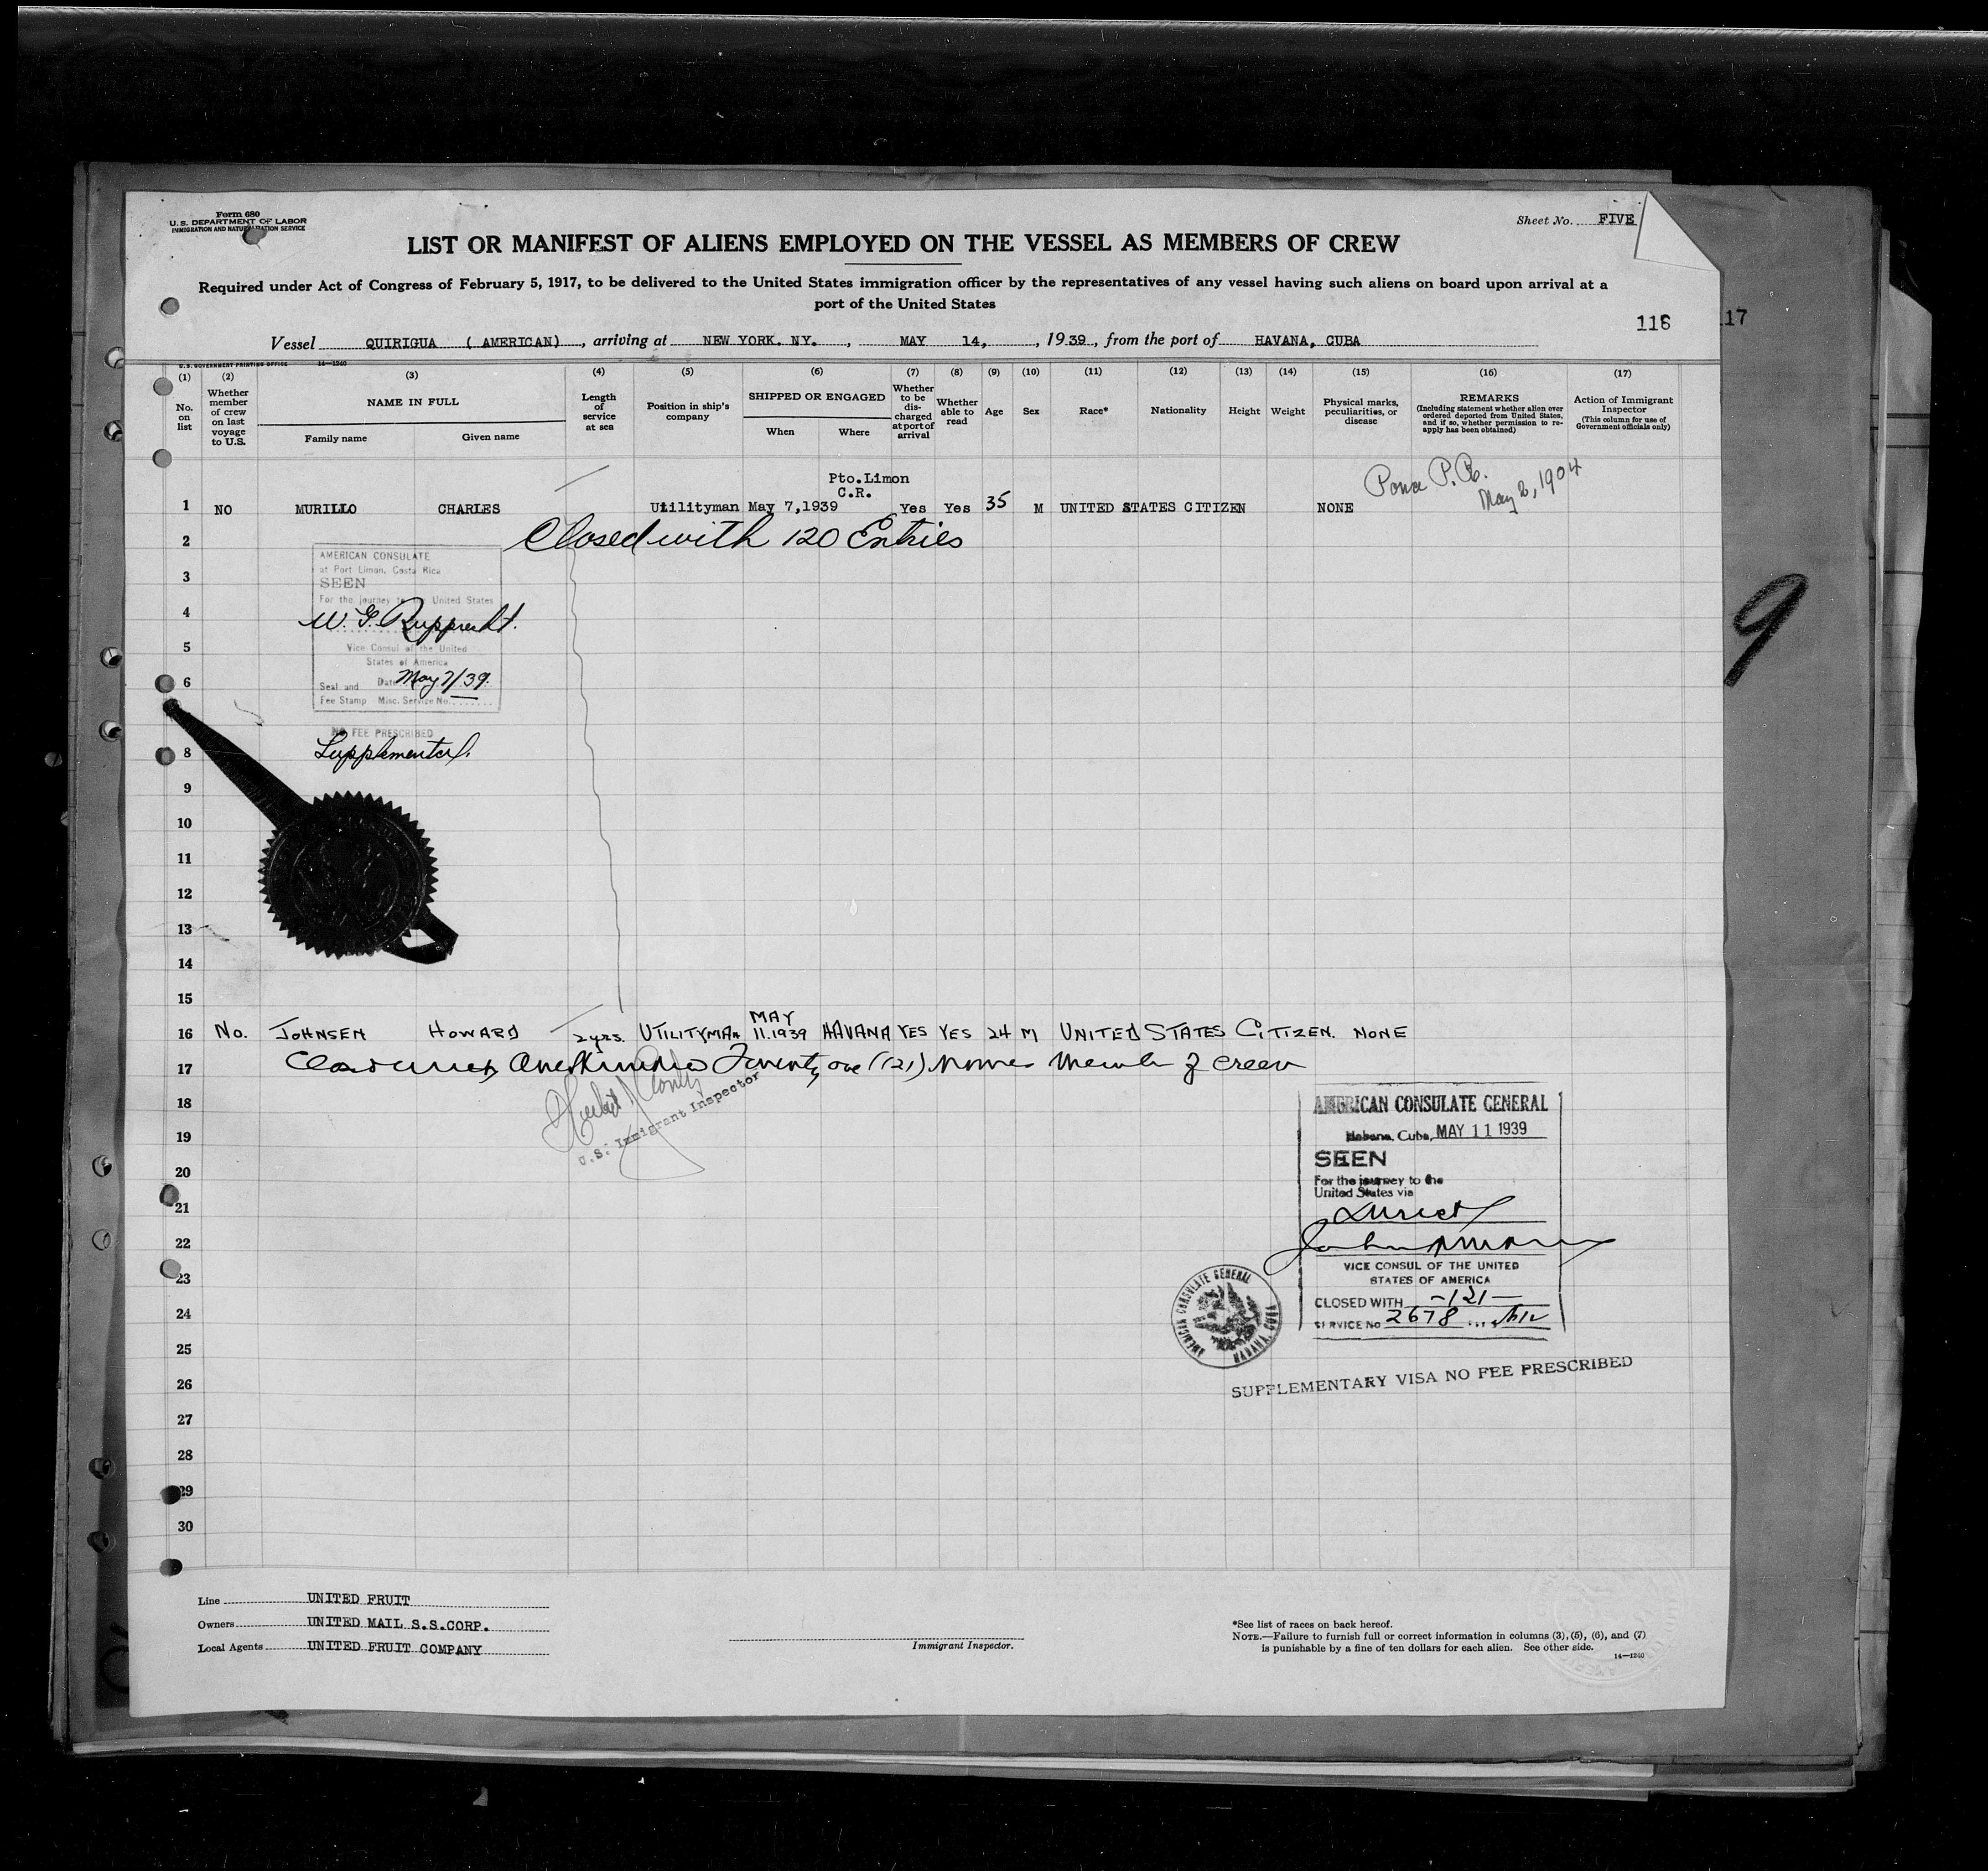 Form 680
U. S. DEPARTMENT OF LABOR
IMMIGRATION AND NATURALIZATION SERVICE
Sheet No. FIVE
LIST OR MANIFEST OF ALIENS EMPLOYED ON THE VESSEL AS MEMBERS OF CREW
Required under Act of Congress of February 5, 1917, to be delivered to the United States immigration officer by the representatives of any vessel having such aliens on board upon arrival at a
port of the United States
116 17
Vessel QUIRIGUA ( AMERICAN) , arriving at NEW YORK. NY. , MAY 14, , 1939 , from the port of HAVANA, CUBA
U.S. GOVERNMENT PRINTING OFFICE 14—1240
(1) (2) (3) (4) (5) (6) (7) (8) (9) (10) (11) (12) (13) (14) (15) (16) (17)
No. on list
Whether member of crew on last voyage to U.S.
NAME IN FULL
Family name Given name
Length of service at sea
Position in ship's company
SHIPPED OR ENGAGED
When Where
Whether to be discharged at port of arrival
Whether able to read
Age
Sex
Race*
Nationality
Height
Weight
Physical marks, peculiarities, or disease
REMARKS
(Including statement whether alien ever ordered deported from United States, and if so, whether permission to reapply has been obtained)
Action of Immigrant Inspector
(This column for use of Government officials only)
Pto.Limon
C.R.
1 NO MURILLO CHARLES Utilityman May 7,1939 Yes Yes 35 M UNITED STATES CITIZEN NONE P.R. May 2, 1904
2 Closed with 120 Entries
AMERICAN CONSULATE
at Port Limon, Costa Rica
3
SEEN
For the journey to the United States
4 W. G. Rupprecht.
5 Vice Consul of the United
States of America
6 Seal and Date May 7/39.
Fee Stamp Misc. Service No.
NO FEE PRESCRIBED
8 Supplemental.
9
9
10
11
12
13
14
15
MAY
16 No. JOHNSEN HOWARD 2yrs. UTILITYMAN 11.1939 HAVANA YES YES 24 M UNITED STATES CITIZEN. NONE
17 One Hundred Twenty one (121) Names Member of Crew
U.S. Immigrant Inspector
18
AMERICAN CONSULATE GENERAL
19
Habana, Cuba, MAY 11 1939
SEEN
20
For the journey to the
United States via
21 Direct
22
VICE CONSUL OF THE UNITED
23 STATES OF AMERICA
CLOSED WITH -121-
24
SERVICE No 2678
AMERICAN CONSULATE GENERAL
HABANA, CUBA
25
26 SUPPLEMENTARY VISA NO FEE PRESCRIBED
27
28
29
30
Line UNITED FRUIT
Owners UNITED MAIL S.S.CORP.
Local Agents UNITED FRUIT COMPANY
Immigrant Inspector.
*See list of races on back hereof.
NOTE.—Failure to furnish full or correct information in columns (3), (5), (6), and (7)
is punishable by a fine of ten dollars for each alien. See other side.
14—1240